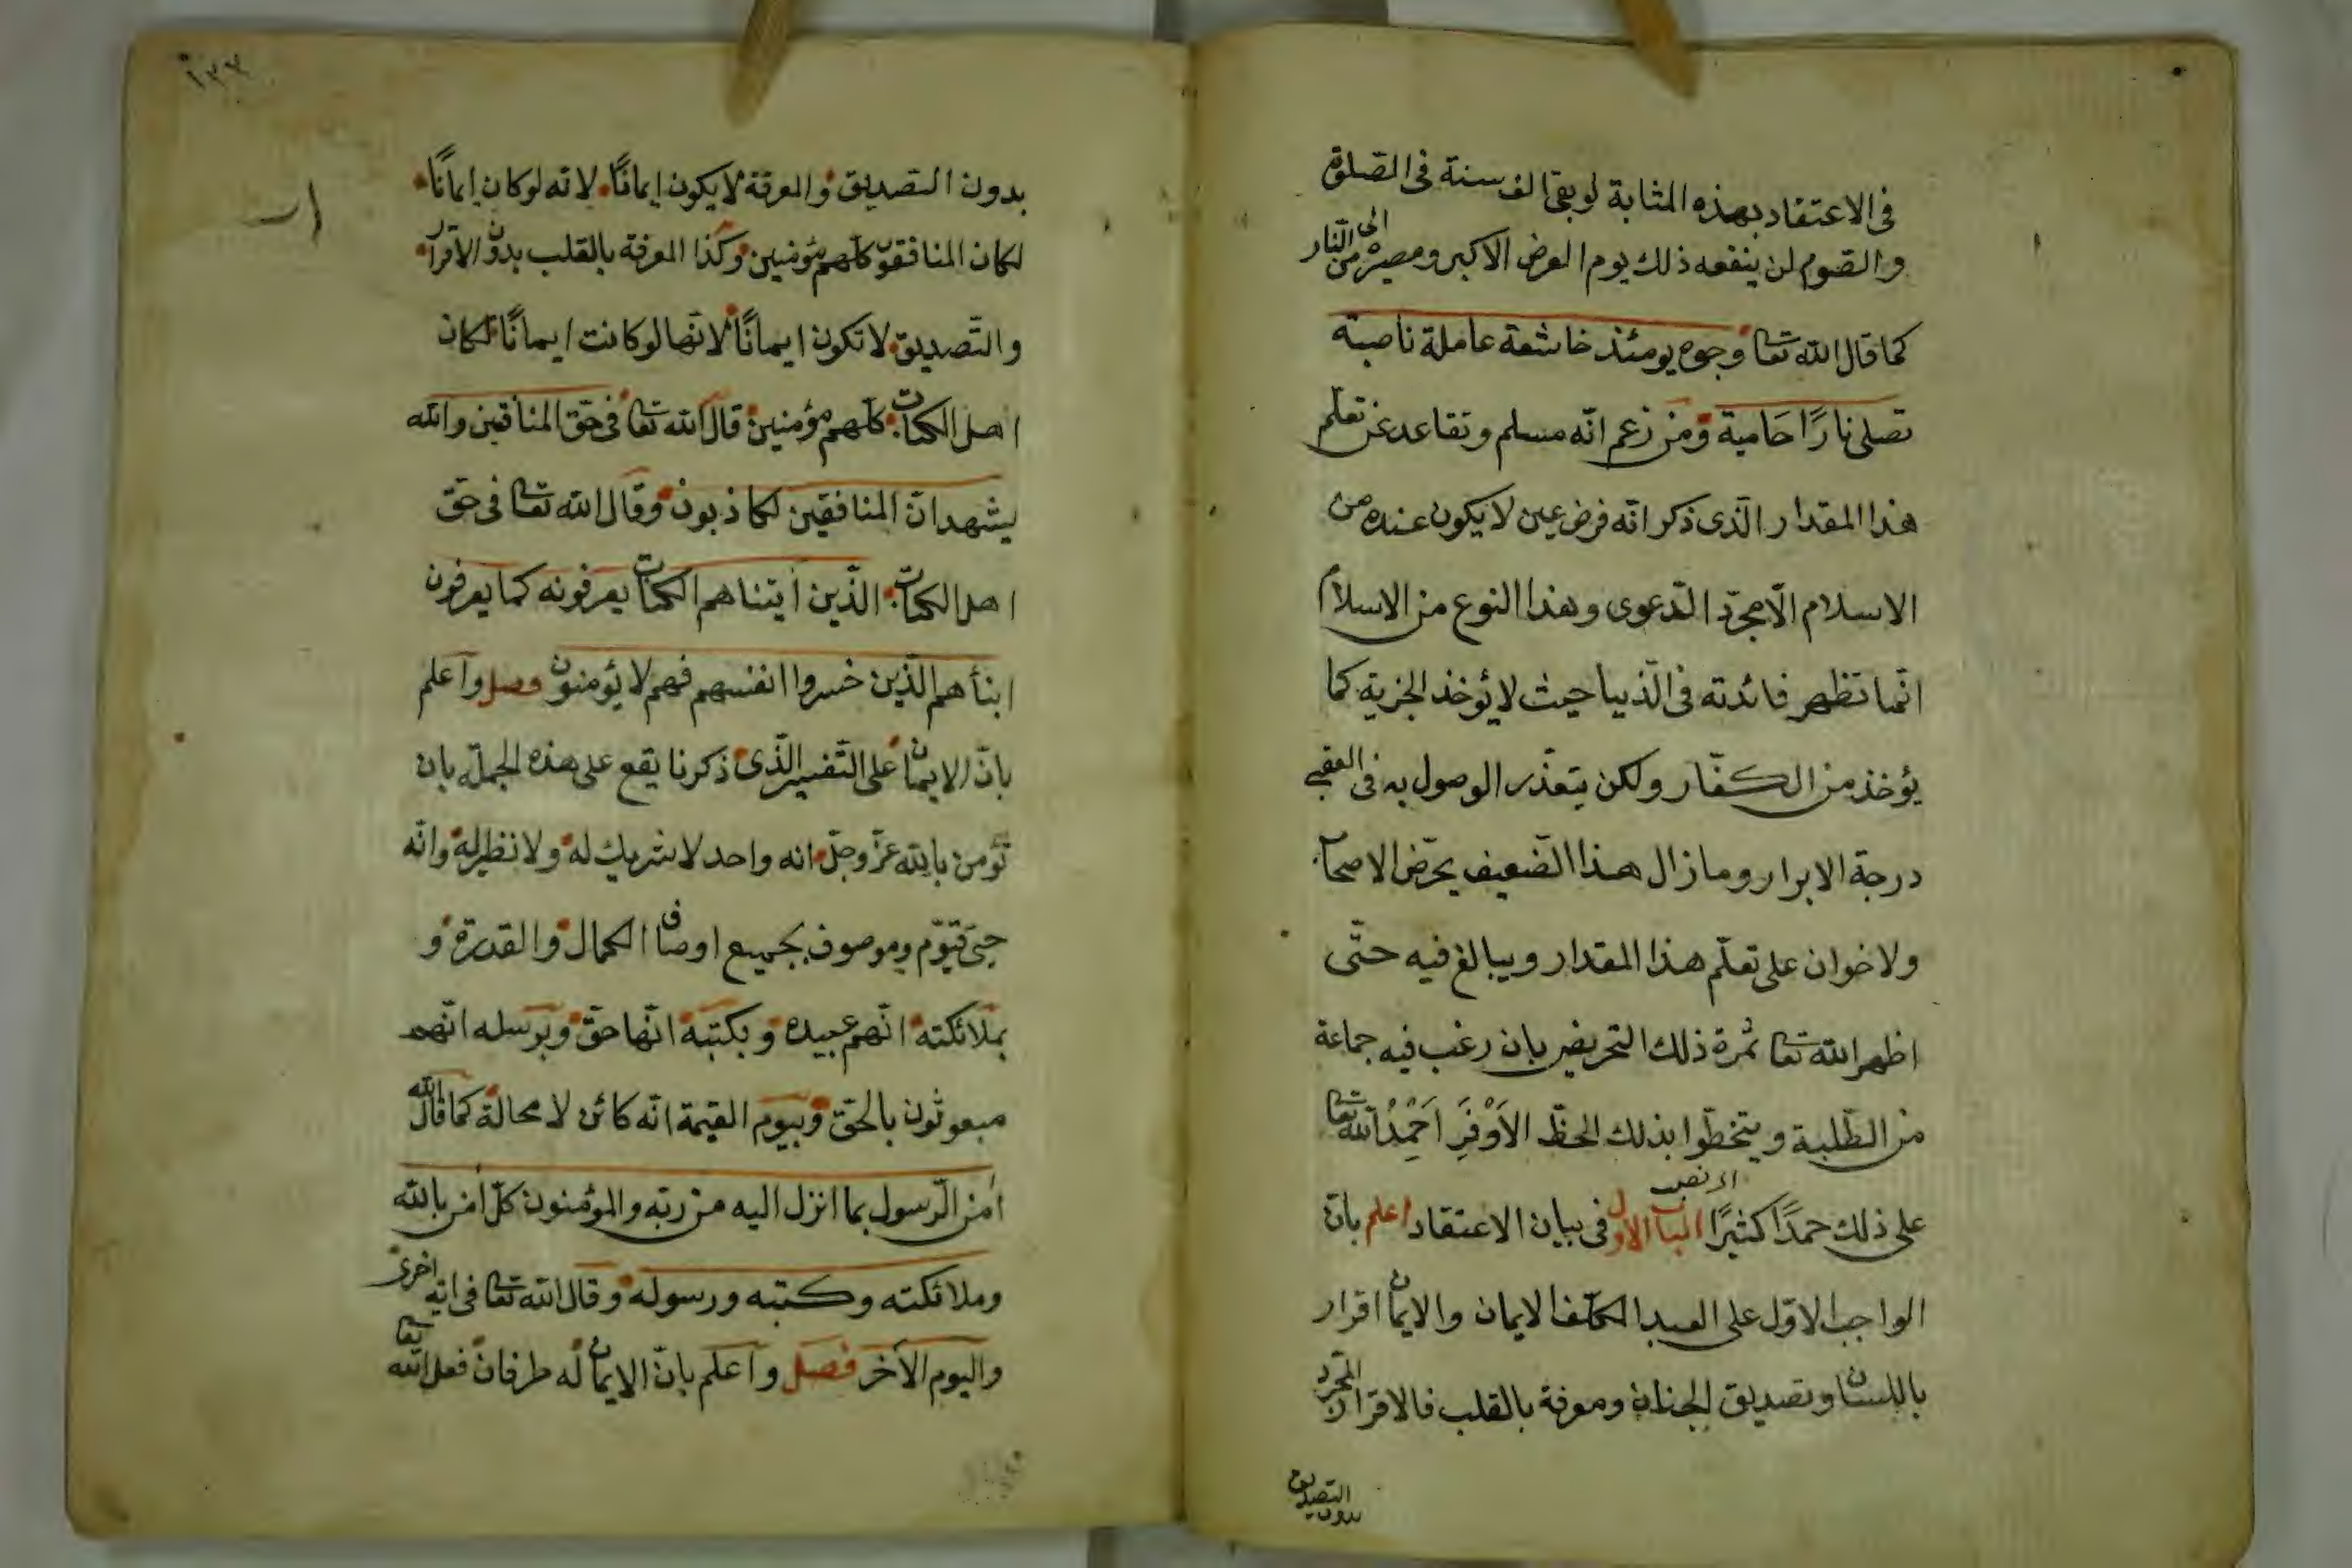 فى الاعتقاد بهذه المثابة لو بقى الف سنة فى الصّلوة
والصّوم لن ينفعه ذلك يوم العرض الاكبر ومصيره الى النّار
كما قال الله تعا وجوه يومئذ خاشعة عاملة ناصبة
تصلى نارًا حَامية ومن زعم انّه مسلم وتقاعد عن تعلّم
هذا المقدار الّذى ذكر انّه فرض عين لا يكون عنده من
الاسلام الّا مجرّد الدّعوى وهذا النوع من الاسلام
انّما تظهر فائدته فى الدّنيا حيث لا يؤخذ الجزية كما
يؤخذ من الكفّار ولكن يتعذّر الوصول به فى العقبى
درجة الابرار وما زال هذا الضّعيف يحرّض الاصحاب
ولاخوان على تعلّم هذا المقدار ويبالغ فيه حتّى
اظهر الله تعا ثمرة ذلك التحريض بان رغب فيه جماعة
من الطّلبة ويتخطّوا بذلك الحظّ الاَوْفَرِ اَحْمِدُ الله تعا
على ذلك حمدًا كثيرًا الباب الاول فى بيان الاعتقاد اعلم بانّ
الواجب الاوّل على العبد المكلّف الايمان والايمان اقرار
باللسان وتصديق الجنان ومعرفة بالقلب فالاقرار المجرّد
بدون التصديق
بدون التصديق والمعرفة لا يكون ايمانًا لانّه لو كان ايمانًا
لكان المنافقون كلّهم مؤمنين وكذا المعرفة بالقلب بدون الاقرار
والتّصديق لا تكون ايمانًا لانّها لو كانت ايمانًا لكان
اهل الكتاب كلّهم مؤمنين قال الله تعا فى حقّ المنافقين والله
يشهد انّ المنافقين لكاذبون وقال الله تعا فى حقّ
اهل الكتاب الّذين أتيناهم الكتاب يعرفونه كما يعرفون
ابنأهم الّذين خسروا انفسهم فهم لا يؤمنون فصل واعلم
بانّ الايمان على التّفسير الّذى ذكرنا يقع على هذه الجملة بان
تؤمن بالله عزّ وجلّ انه واحد لا شريك له ولا نظير له وانّه
حىّ قيّوم وموصوف بجميع اوصاف الكمال والقدرة و
بملائكته انّهم عبيده وبكتبه انّها حقّ وبرسله انّهم
مبعوثون بالحقّ وبيوم القيمة انّه كائن لا محالة كما قال الله
أمن الرّسول بما انزل اليه من ربّه والمؤمنون كلّ أمن بالله
وملائكته وكتبه ورسوله وقال الله تعا فى اية اخرى
واليوم الأخر فصل واعلم بانّ الايمان له طرفان فعل الله تعا